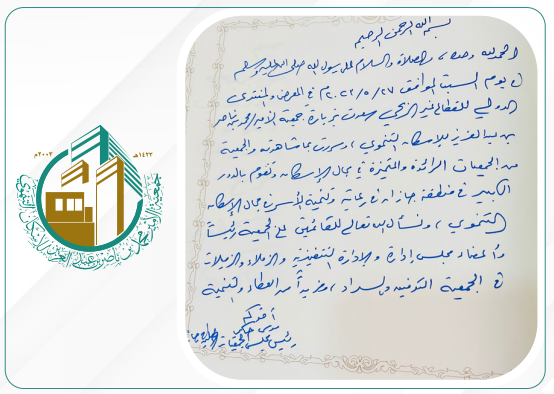 بسم الله الرحمن الرحيم
الحمد لله وحده ، والصلاة والسلام على رسول الله صلى الله عليه وسلم
في يوم السبت الموافق ٢٠٢٢/٥/٢٧م في المعرض والمنتدى
الدولي للقطاع غير الربحي سعدت بزيارة جمعية الأمير محمد بن ناصر
بن عبدالعزيز للإسكان التنموي ، وسررت بما شاهدته والجمعية
من الجمعيات الرائدة والمتميزة في مجال الإسكان وتقوم بالدور
الكبير في منطقة جازان في رعاية وتنمية الأسر في مجال الإسكان
التنموي ، ونسأل الله تعالى للقائمين على الجمعية رئيساً
وأعضاء مجلس إدارة والإدارة التنفيذية والزملاء والزميلات
في الجمعية التوفيق والسداد ، ومزيداً من العطاء والتنمية
أخوكم
رئيس مجلس
١٤٢٢هـ
٢٠٠٢م
جمعية الأمير محمد بن ناصر بن عبدالعزيز للإسكان التنموي